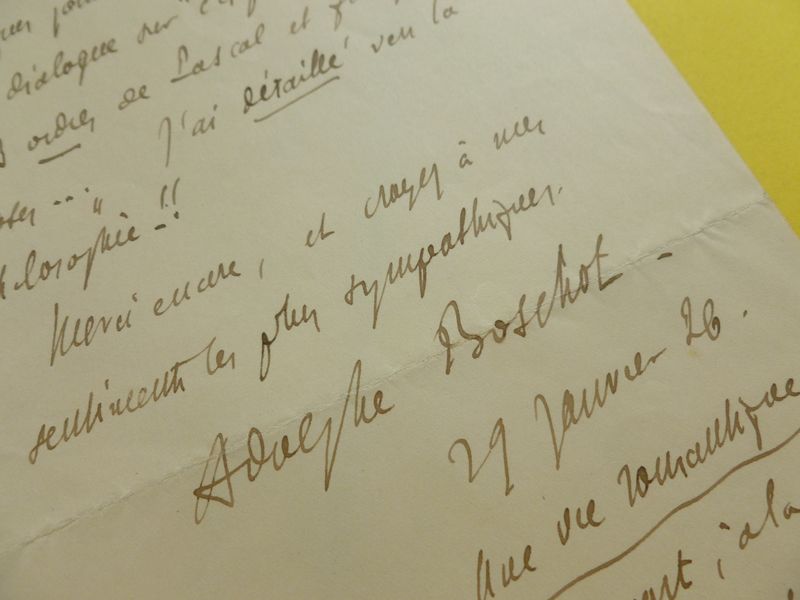 dialogue sur
ordres de Pascal et
J'ai détaillé vers la
... " !!
Merci encore, et croyez à mes
sentiments les plus sympathiques.
Adolphe Boschot -
29 Janvier 26.
Une vie romantique
j'ala